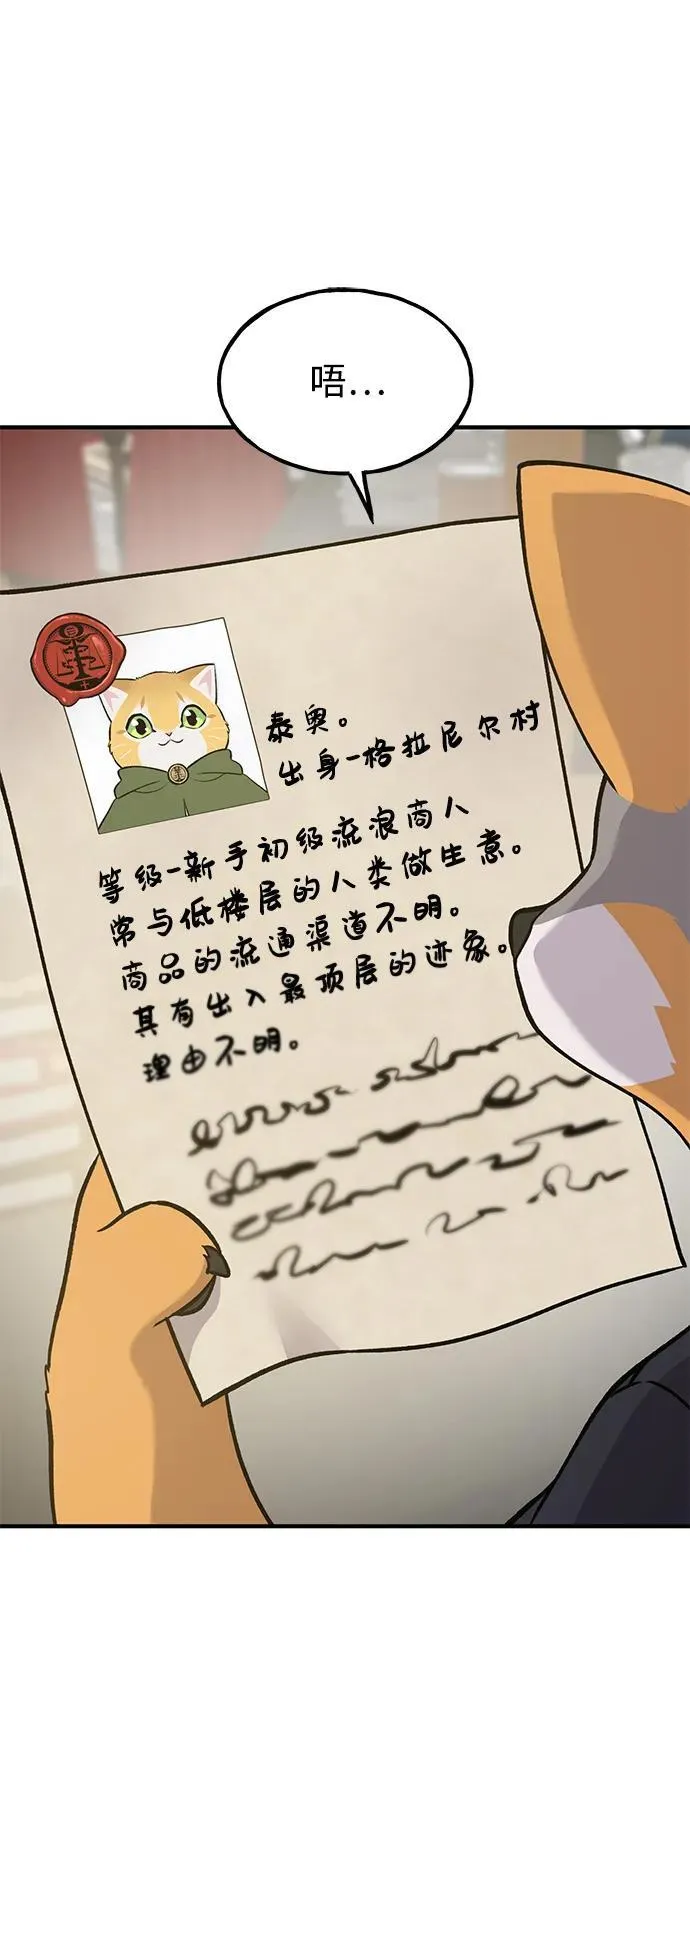 唔...
泰奥。
出身-格拉尼尔村
等级-新手初级流浪商人
常与低楼层的人类做生意。
商品的流通渠道不明。
其有出入最顶层的迹象。
理由不明。